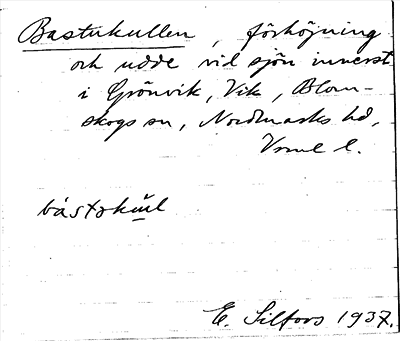 Bastukullen, förhöjning
och udde vid sjön innerst
i Grönvik, Vik, Blom-
skogs sn, Nordmarks hd,
Vrml l.
E. Silfors 1937.